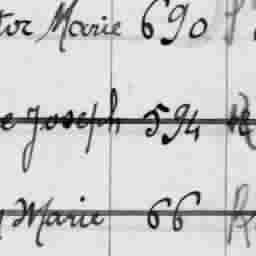 tor Marie 690
e Joseph 594
Marie 66